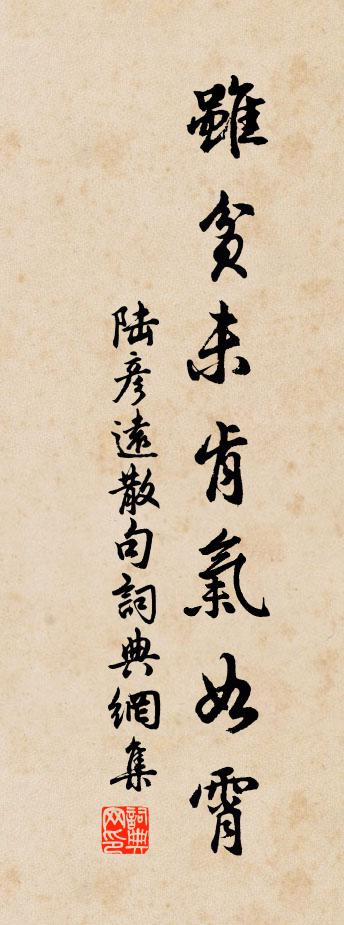 雖貧未肯氣如霄
陸彥遠散句詞典網集
詞典
网印